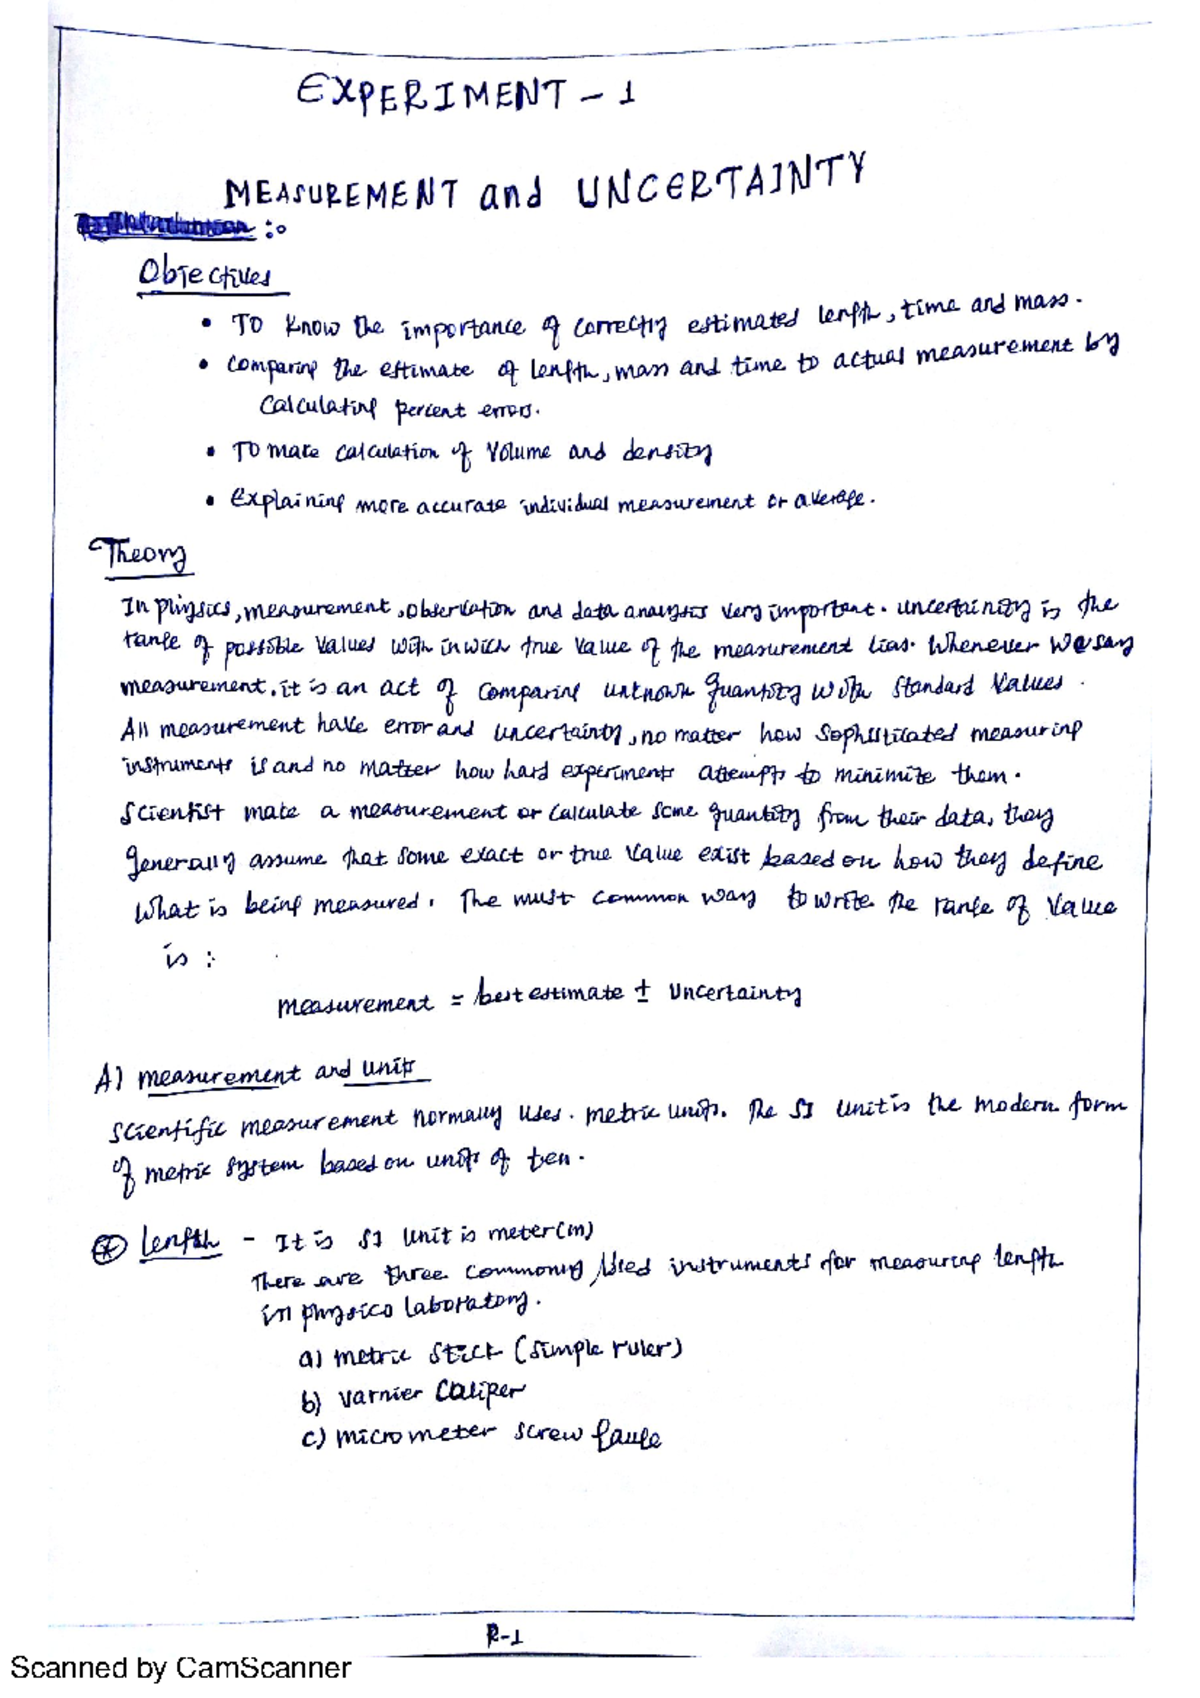 EXPERIMENT - 1
MEASUREMENT and UNCERTAINTY
:
Objectives
• TO know the importance of correctly estimated length, time and mass.
• comparing the estimate of length, mass and time to actual measurement by
calculating percent errors.
• TO make calculation of volume and density
• Explaining more accurate individual measurement or average.
Theory
In physics, measurement, observation and data analysis very important. uncertainity is the
range of possible values with in wich true value of the measurement lias. Whenever we say
measurement, it is an act of comparing unknown quantity with standard values.
All measurement have error and uncertainty, no matter how sophisticated measuring
instruments is and no matter how hard experiments attempts to minimize them.
Scientist make a measurement or calculate some quantity from their data, they
generally assume that some exact or true value exist based on how they define
what is being measured. The must common way to write the range of value
is :
measurement = best estimate ± uncertainty
A) measurement and units
Scientific measurement normally uses. metric units. The SI unit is the modern form
of metric system based on units of ten.
* length - It is SI unit is meter(m)
There are three commonly used instruments for measuring length
in physics laboratory.
a) metric stick (simple ruler)
b) varnier caliper
c) micrometer screw gauge
R-1
Scanned by CamScanner